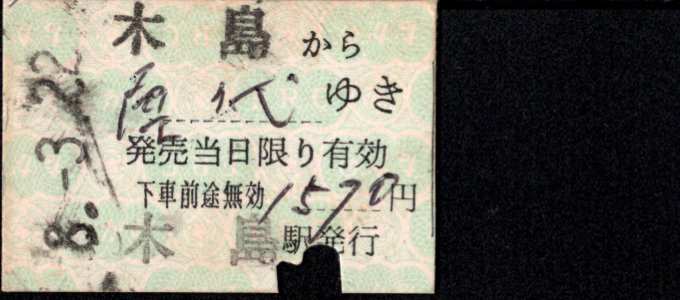 木島から
屋代ゆき
発売当日限り有効
下車前途無効 1570円
木島駅発行
8.-3.22